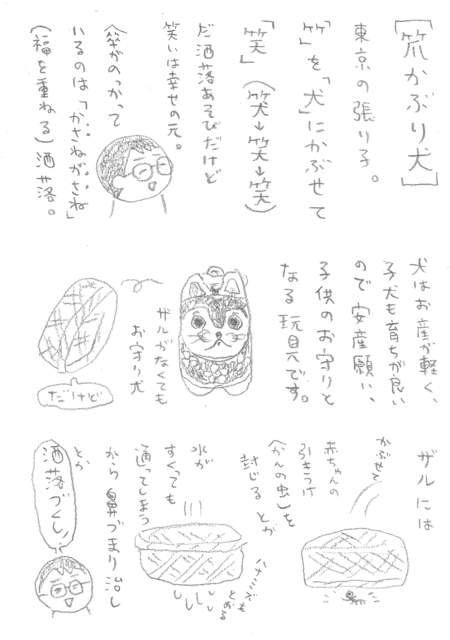 ［笊かぶり犬］
東京の張り子。
「竹」を「犬」にかぶせて
「笑」（笶→笑→笑）
だ洒落あそびだけど
笑いは幸せの元。
（傘がのっかって
いるのは「かさねがさね」
（福を重ねる）洒落。
犬はお産が軽く、
子犬も育ちが良い
ので安産願い、
子供のお守りと
なる玩具です。
ザルがなくても
お守り犬
だけど
ザルには
かぶせて
赤ちゃんの
引きつけ
（かんの虫）を
封じるとか
水が
すくっても
通ってしまう
から鼻づまり治し
とか
洒落づくし